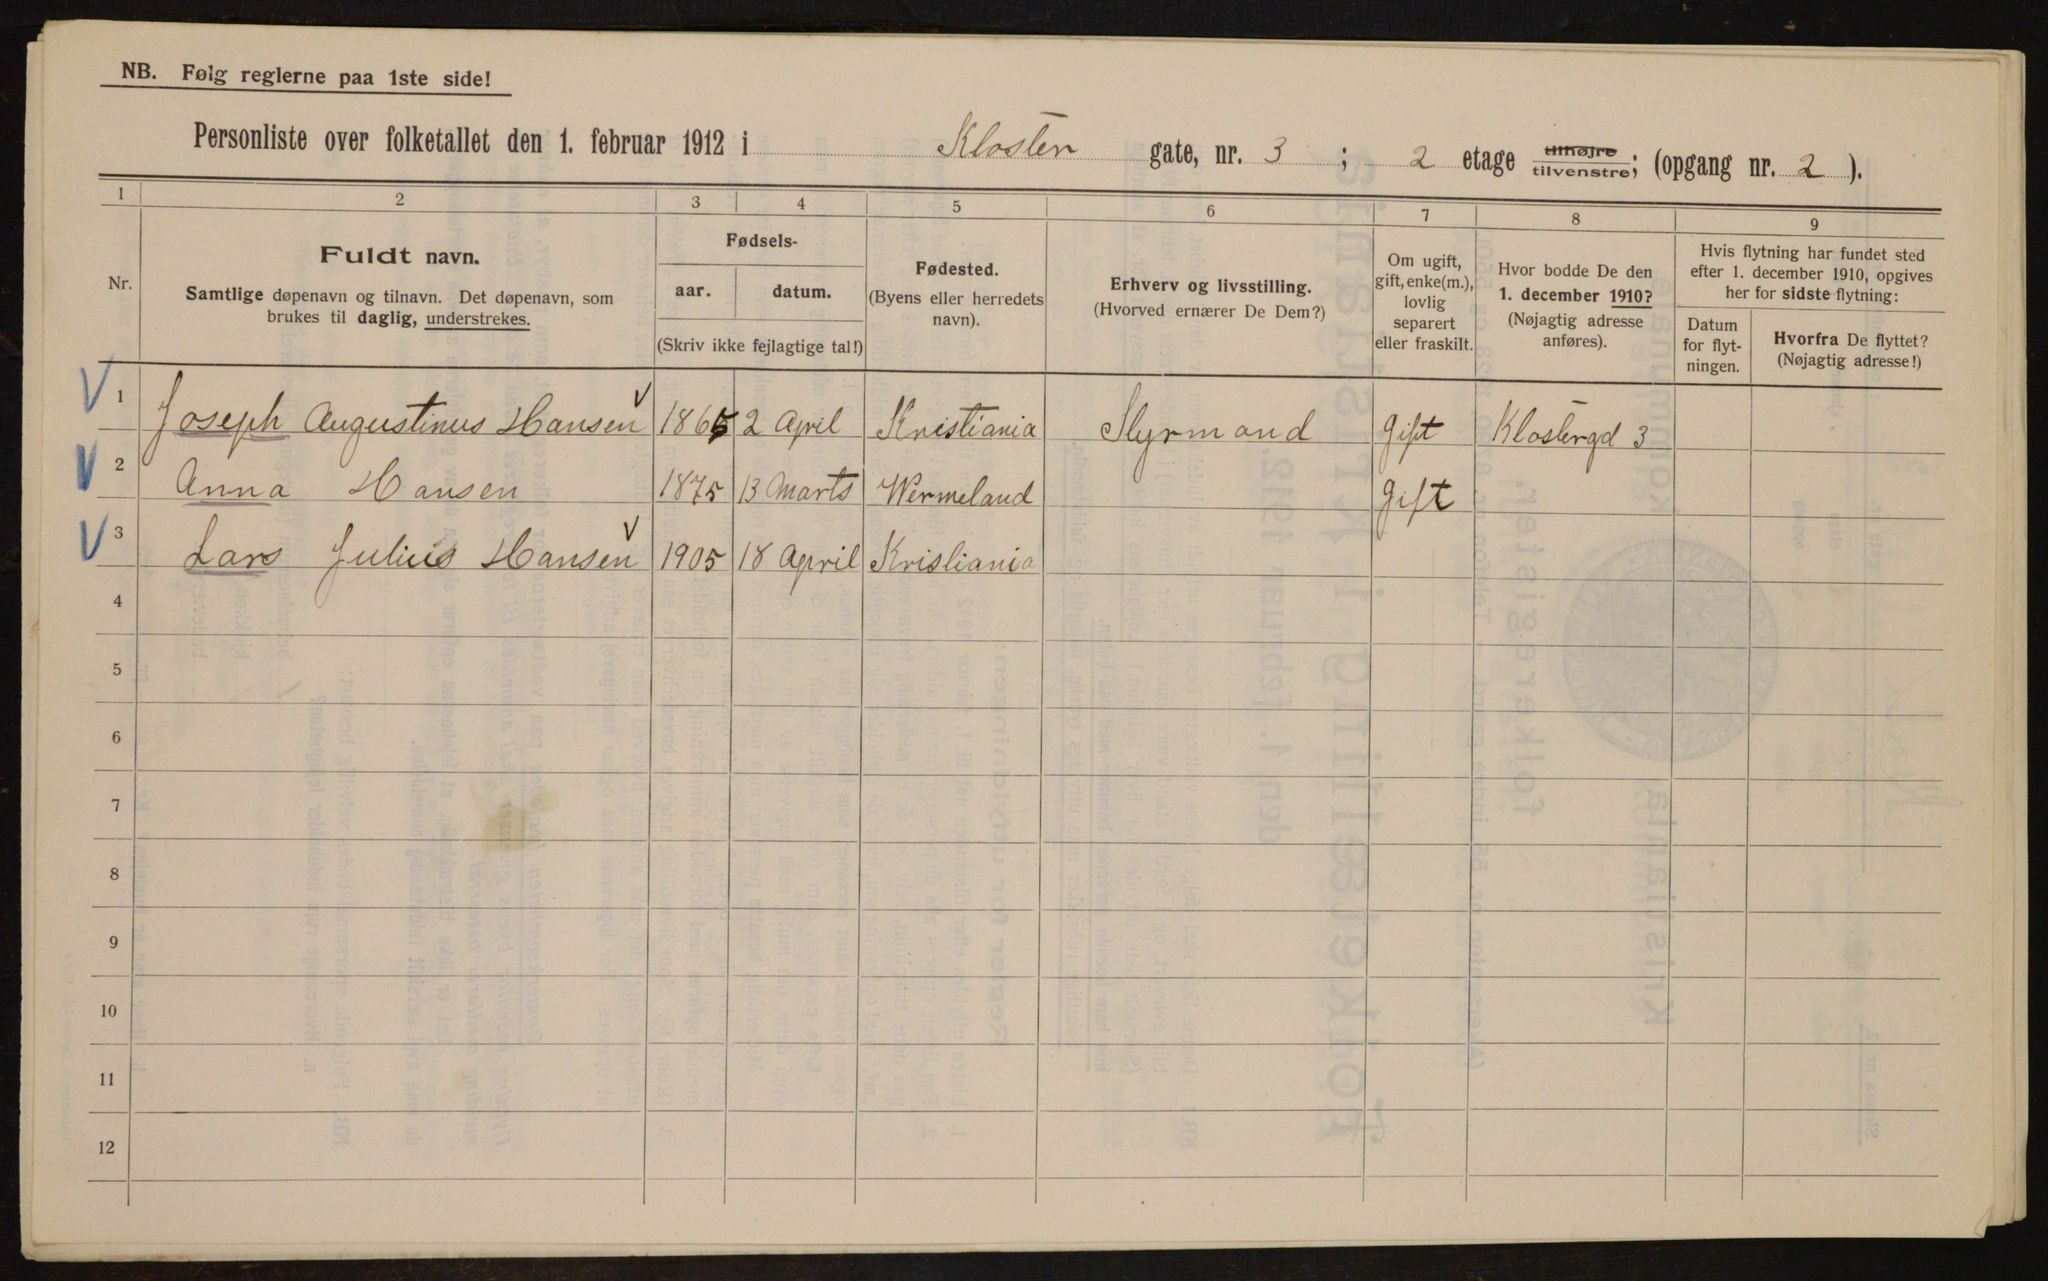 NB. Følg reglerne paa 1ste side!
Personliste over folketallet den 1. februar 1912 i Kloster gate, nr. 3 ; 2 etage tilhøjre tilvenstre; (opgang nr. 2 ).
1 2 3 4 5 6 7 8 9
Nr.
Fuldt navn.
Samtlige døpenavn og tilnavn. Det døpenavn, som
brukes til daglig, understrekes.
Fødsels-
aar. datum.
(Skriv ikke fejlagtige tal!)
Fødested.
(Byens eller herredets
navn).
Erhverv og livsstilling.
(Hvorved ernærer De Dem?)
Om ugift,
gift, enke(m.),
lovlig
separert
eller fraskilt.
Hvor bodde De den
1. december 1910?
(Nøjagtig adresse
anføres).
Hvis flytning har fundet sted
efter 1. december 1910, opgives
her for sidste flytning:
Datum
for flyt-
ningen.
Hvorfra De flyttet?
(Nøjagtig adresse!)
1 Joseph Augustinus Hansen 1865 2 April Kristiania Styrmand Gift Klostergd 3
2 Anna Hansen 1875 13 Marts Wermeland Gift
3 Lars Julius Hansen 1905 18 April Kristiania
4
5
6
7
8
9
10
11
12